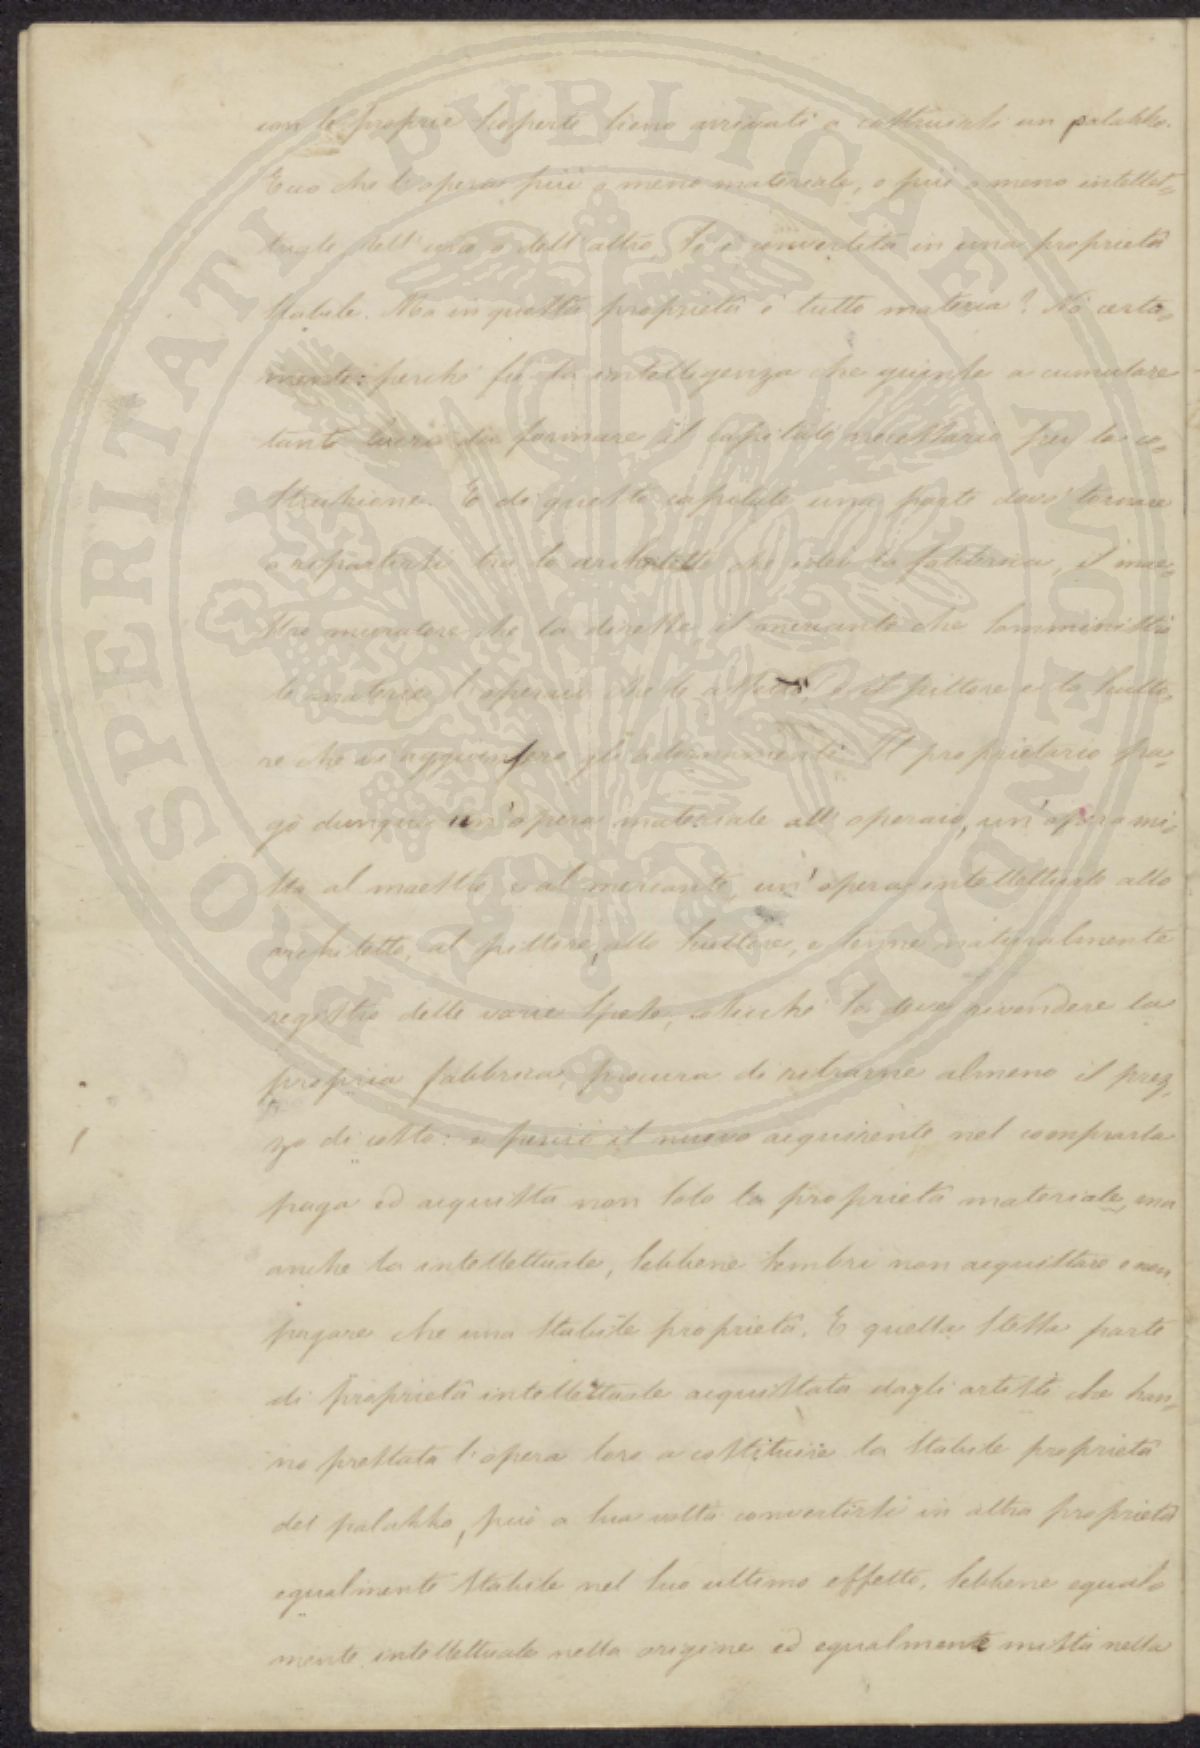 con le proprie scoperte sieno arrivati a costruirsi un palazzo.
Ecco che l'opera più o meno materiale, o più o meno intellet=
tuale dell'uno o dell'altro, si è convertita in una proprietà
stabile. Ma in questa proprietà è tutto materia? Nò certa=
mente: perchè fu la intelligenza che giunse a cumulare
tanto lucro da formare il capitale necessario per la co=
struzione. E di questo capitale una parte dovè tornare
a repartirsi tra lo architetto che ideò la fabbrica, il mae=
stro muratore che la diresse, il mercante che somministrò
le materie, l'operaio che le assettò, e il pittore e lo sculto=
re che vi aggiunsero gli adornamenti. Il proprietario pa=
gò dunque un'opera materiale all'operaio, un'opera mi=
sta al maestro e al mercante, un'opera intellettuale allo
architetto, al pittore, allo scultore, e tenne naturalmente
registro delle varie spese, sicchè se deve rivendere la
propria fabbrica, procura di ritrarne almeno il prez=
zo di costo: e perciò il nuovo acquirente nel comprarla
paga ed acquista non solo la proprietà materiale, ma
anche la intellettuale, sebbene sembri non acquistare e non
pagare che una stabile proprietà. E quella stessa parte
di proprietà intellettuale acquistata dagli artisti che han=
no prestata l'opera loro a costituire la stabile proprietà
del palazzo, può a sua volta convertirsi in altra proprietà
egualmente stabile nel suo ultimo effetto, sebbene egual=
mente intellettuale nella origine ed egualmente mista nella
PROSPERITATI PUBLICAE AUGENDAE